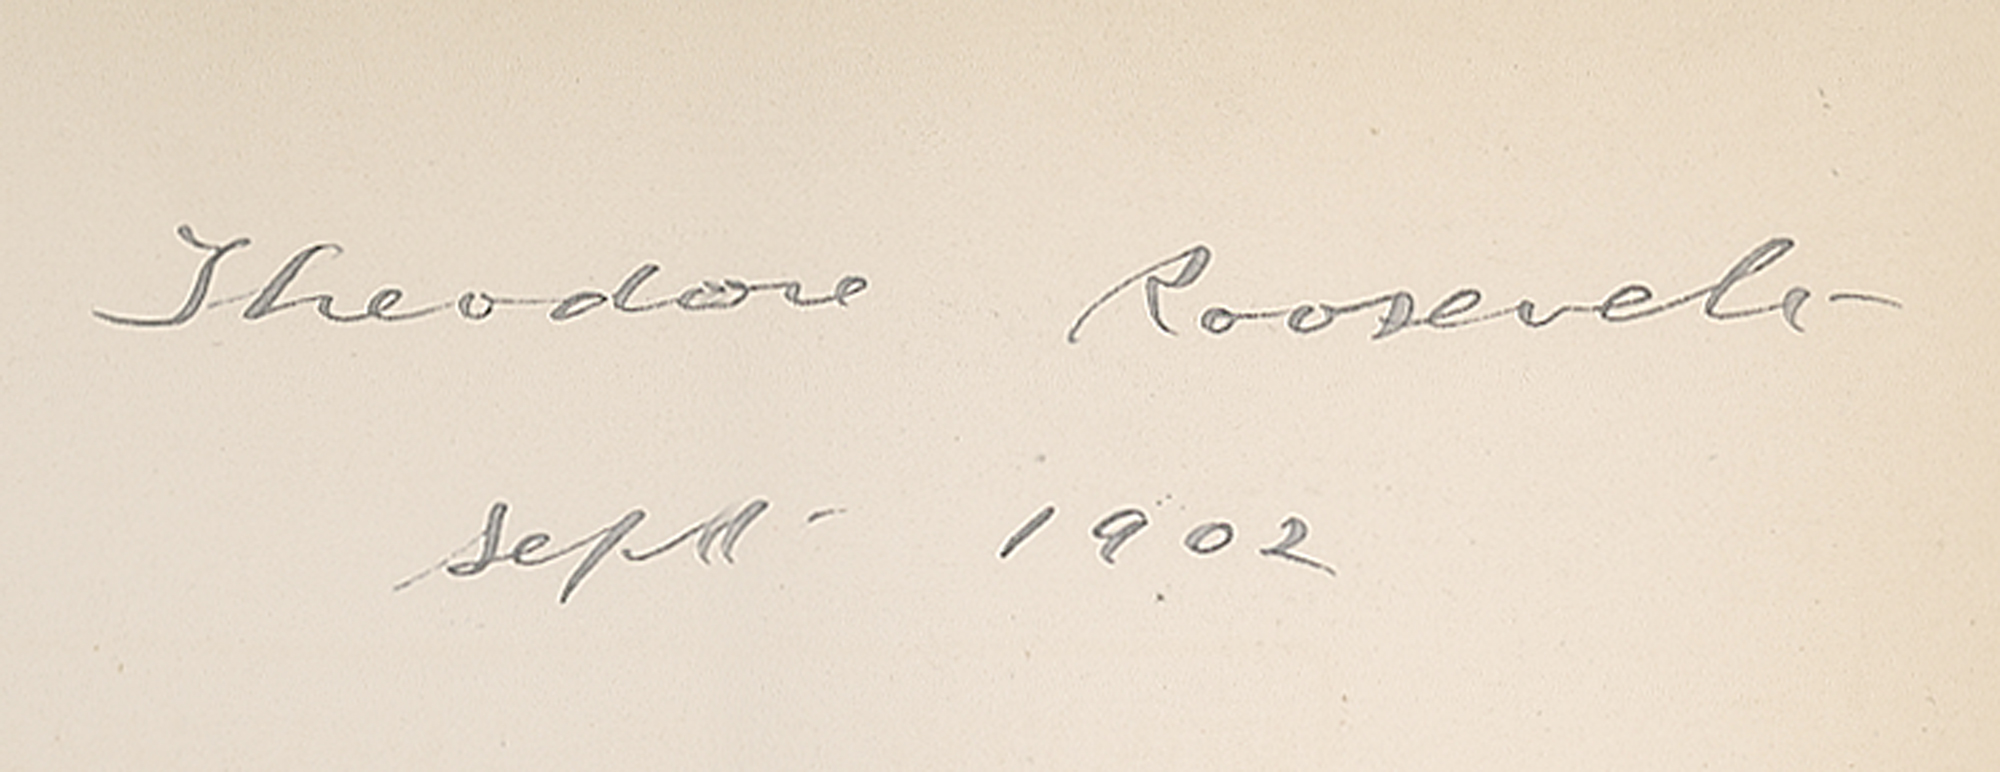 Theodore Roosevelt
Sept 1902